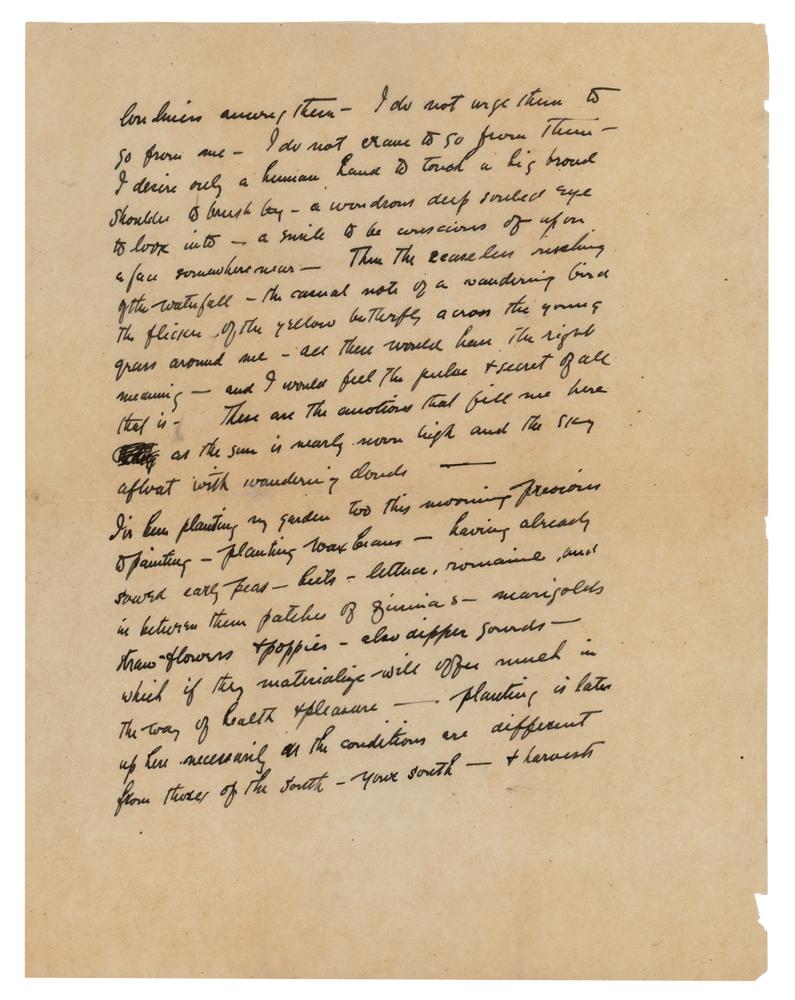 loneliness among them — I do not urge them to
go from me — I do not crave to go from them —
I desire only a human hand to touch a big broad
shoulder to brush by — a wondrous deep souled eye
to look into — a smile to be conscious of upon
a face somewhere near — Then the ceaseless rushing
of the waterfall — the casual note of a wandering bird
the flicker of the yellow butterfly across the young
grass around me — all these would have the right
meaning — and I would feel the pulse + secret of all
that is — These are the emotions that fill me here
as the sun is nearly noon high and the sky
afloat with wandering clouds —
I've been planting my garden too this morning previous
to painting — planting wax beans — having already
sowed early peas — beets — lettuce, romaine, and
in between them patches of zinnias — marigolds
straw-flowers + poppies — also dipper gourds —
which if they materialize will offer much in
the way of health + pleasure — planting is later
up here necessarily as the conditions are different
from those of the south — your south — + harvests